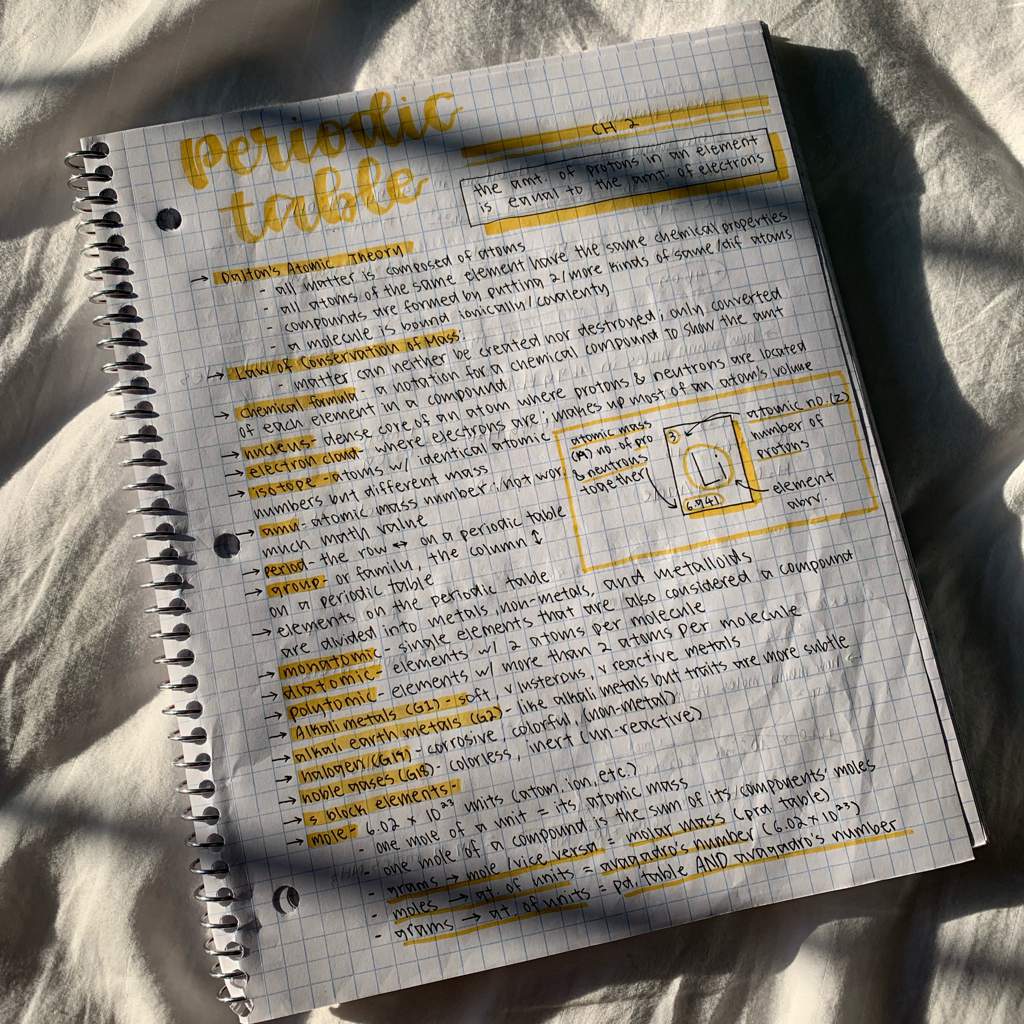 periodic
table
CH 2
the amt. of protons in an element
is equal to the amt. of electrons
→ Dalton's Atomic Theory
- all matter is composed of atoms
- all atoms of the same element have the same chemical properties
- compounds are formed by putting 2/more kinds of same/dif atoms
- a molecule is bound ionically/covalenty
→ Law of Conservation of Mass:
- matter can neither be created nor destroyed; only converted
→ chemical formula- a notation for a chemical compound to show the amt
of each element in a compound
→ nucleus- dense core of an atom where protons & neutrons are located
→ electron cloud- where electrons are; makes up most of an atom's volume
→ isotope- atoms w/ identical atomic
numbers but different mass
→ amu- atomic mass number; not wor.
much math value
→ period- the row ↔ on a periodic table
→ group- or family, the column ↕
on a periodic table
atomic mass
(A) no. of pro
& neutrons
together
3
Li
6.941
atomic no.(Z)
number of
protons
element
abrv.
→ elements on the periodic table
are divided into metals, non-metals, and metalloids
→ monatomic- single elements that are also considered a compound
→ diatomic- elements w/ 2 atoms per molecule
→ polytomic- elements w/ more than 2 atoms per molecule
→ Alkali metals (G1)- soft, v lusterous, v reactive metals
→ alkali earth metals (G2)- like alkali metals but traits are more subtle
→ halogen (G17)- corrosive, colorful (non-metal)
→ noble gases (G18)- colorless, inert (un-reactive)
→ s block elements-
→ mole- 6.02 x 10²³ units (atom, ion, etc.)
- one mole of a unit = its atomic mass
- one mole of a compound is the sum of its components' moles
- grams → mole /vice versa = molar mass (prd table)
- moles → at. of units = avagadro's number (6.02x10²³)
- grams → at. of units = pd. table AND avagadro's number